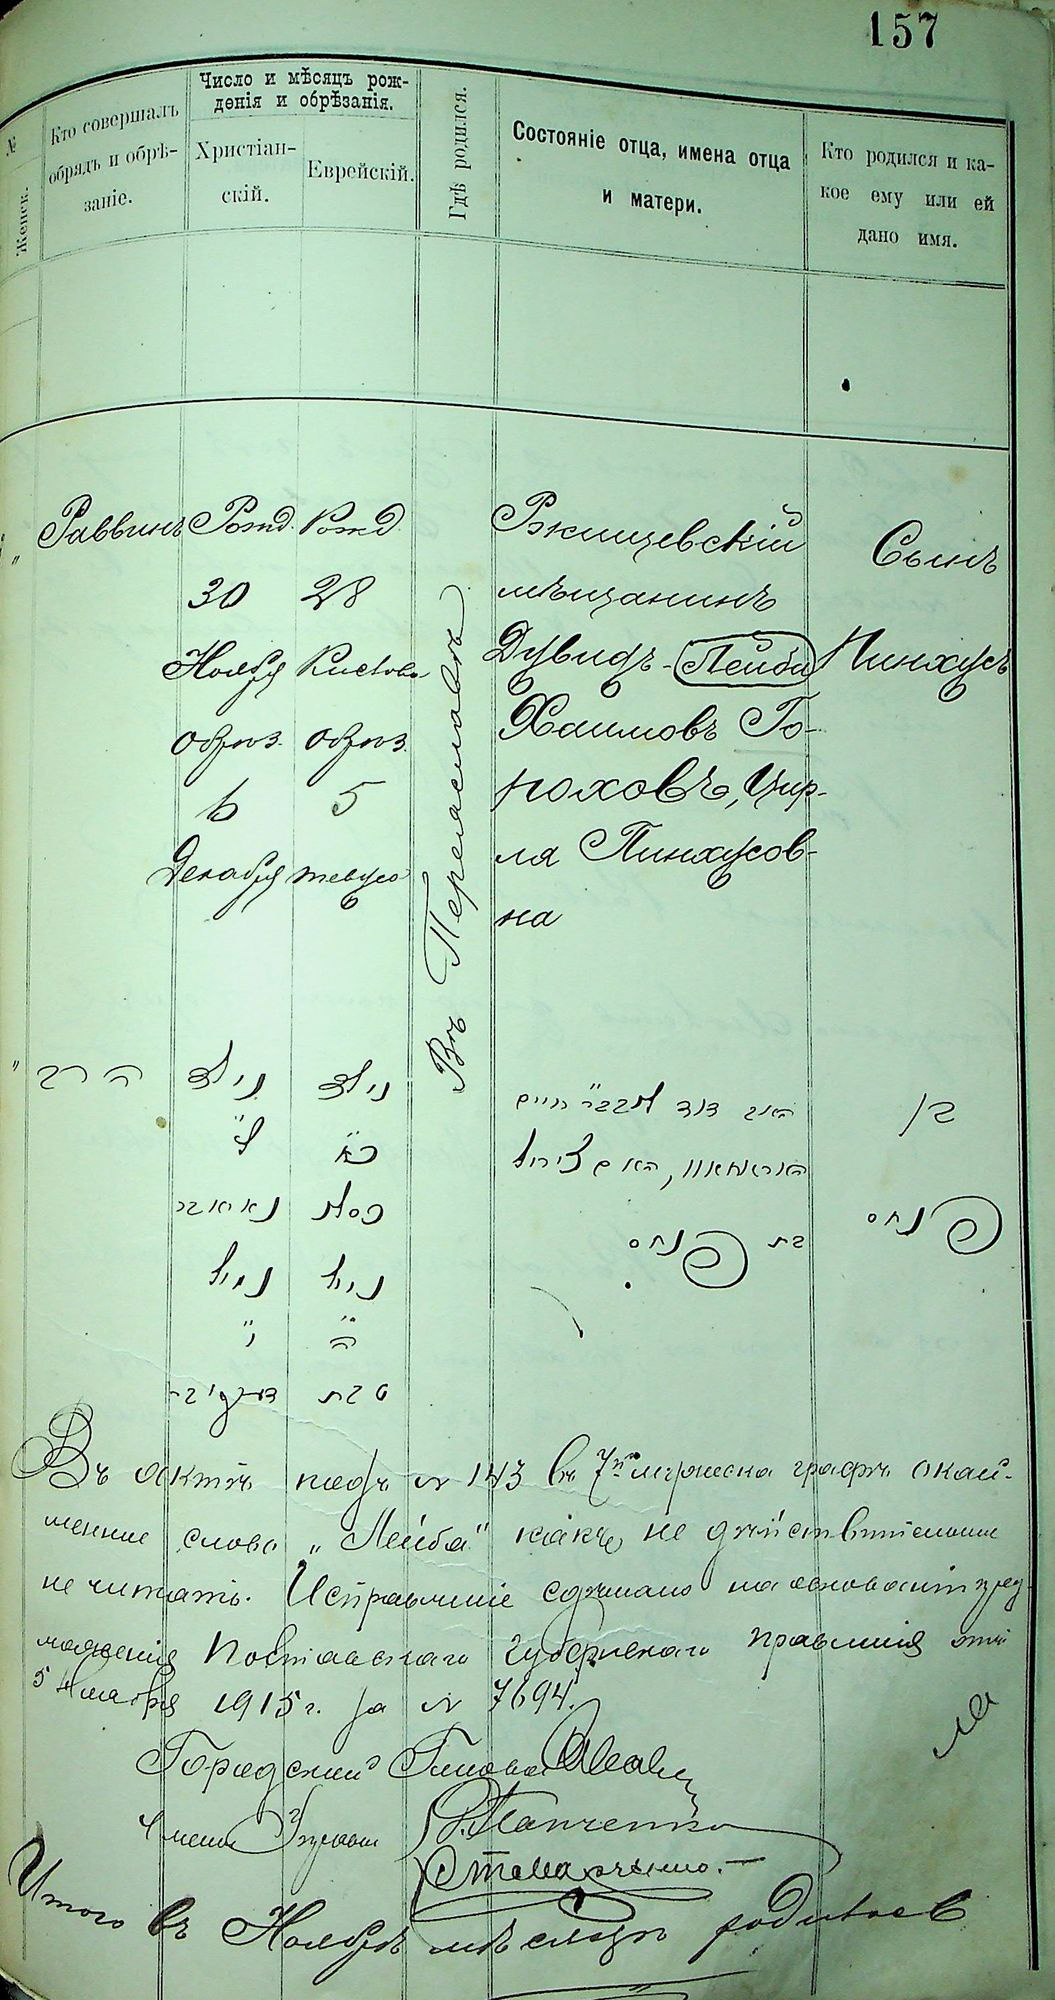 157
№
Женск.
Кто совершалъ
обрядъ и обрѣ-
заніе.
Число и мѣсяцъ рож-
денія и обрѣзанія.
Христіан-
скій.
Еврейскій.
Гдѣ родился.
Состояніе отца, имена отца
и матери.
Кто родился и ка-
кое ему или ей
дано имя.
"
Раввинъ
Рожд.
30
Ноября
обрѣз.
6
Декабря
Рожд.
28
Кислова
обрѣз.
5
тевуса
Въ Переяславѣ
Ржищевскій
мѣщанинъ
Дувидъ-Лейба
Хаимовъ Го-
роховъ, Цир-
ля Пинхусов-
на
Сынъ
Пинхусъ
"
הרב
נולד
ל"
נאיאבר
נימול
ו"
דעקאבר
נולד
כ"ח
כסלו
נימול
ה"
טבת
האב דוד חיים
האם צירל
בת פנחס
בן
פנחס
Въ актѣ подъ № 143 въ 7й графѣ окай-
мленное слово „Лейба" какъ не дѣйствительное
не читать. Исправленіе сдѣлано на основаніи пред-
ложенія Полтавскаго Губернскаго Правленія отъ
5 1915 г. за № 7694.
Городской Голова
Члены Управы Панченко
Итого въ Ноябрѣ мѣсяцѣ родилось